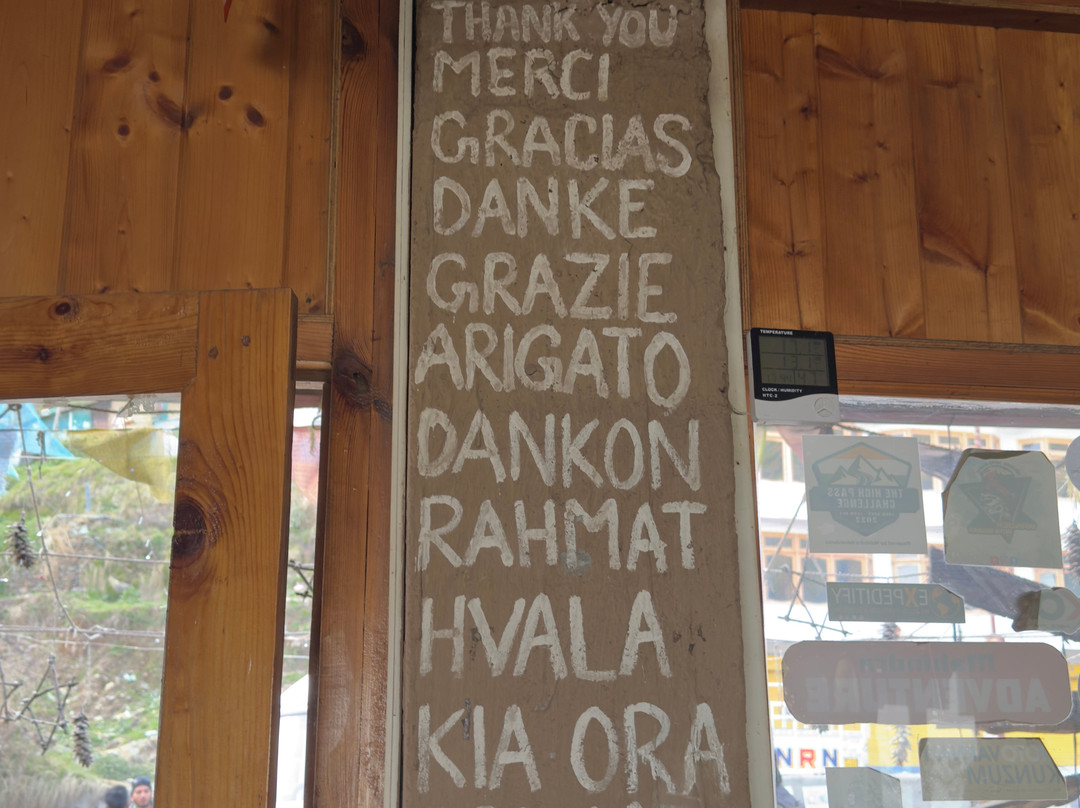 THANK YOU
MERCI
GRACIAS
DANKE
GRAZIE
ARIGATO
DANKON
RAHMAT
HVALA
KIA ORA
TEMPERATURE
CLOCK / HUMIDITY
HTC-2
THE HIGH PASS
CHALLENGE
2022
EXPEDITIFY
ADVENTURE
KUNZUM
NRN